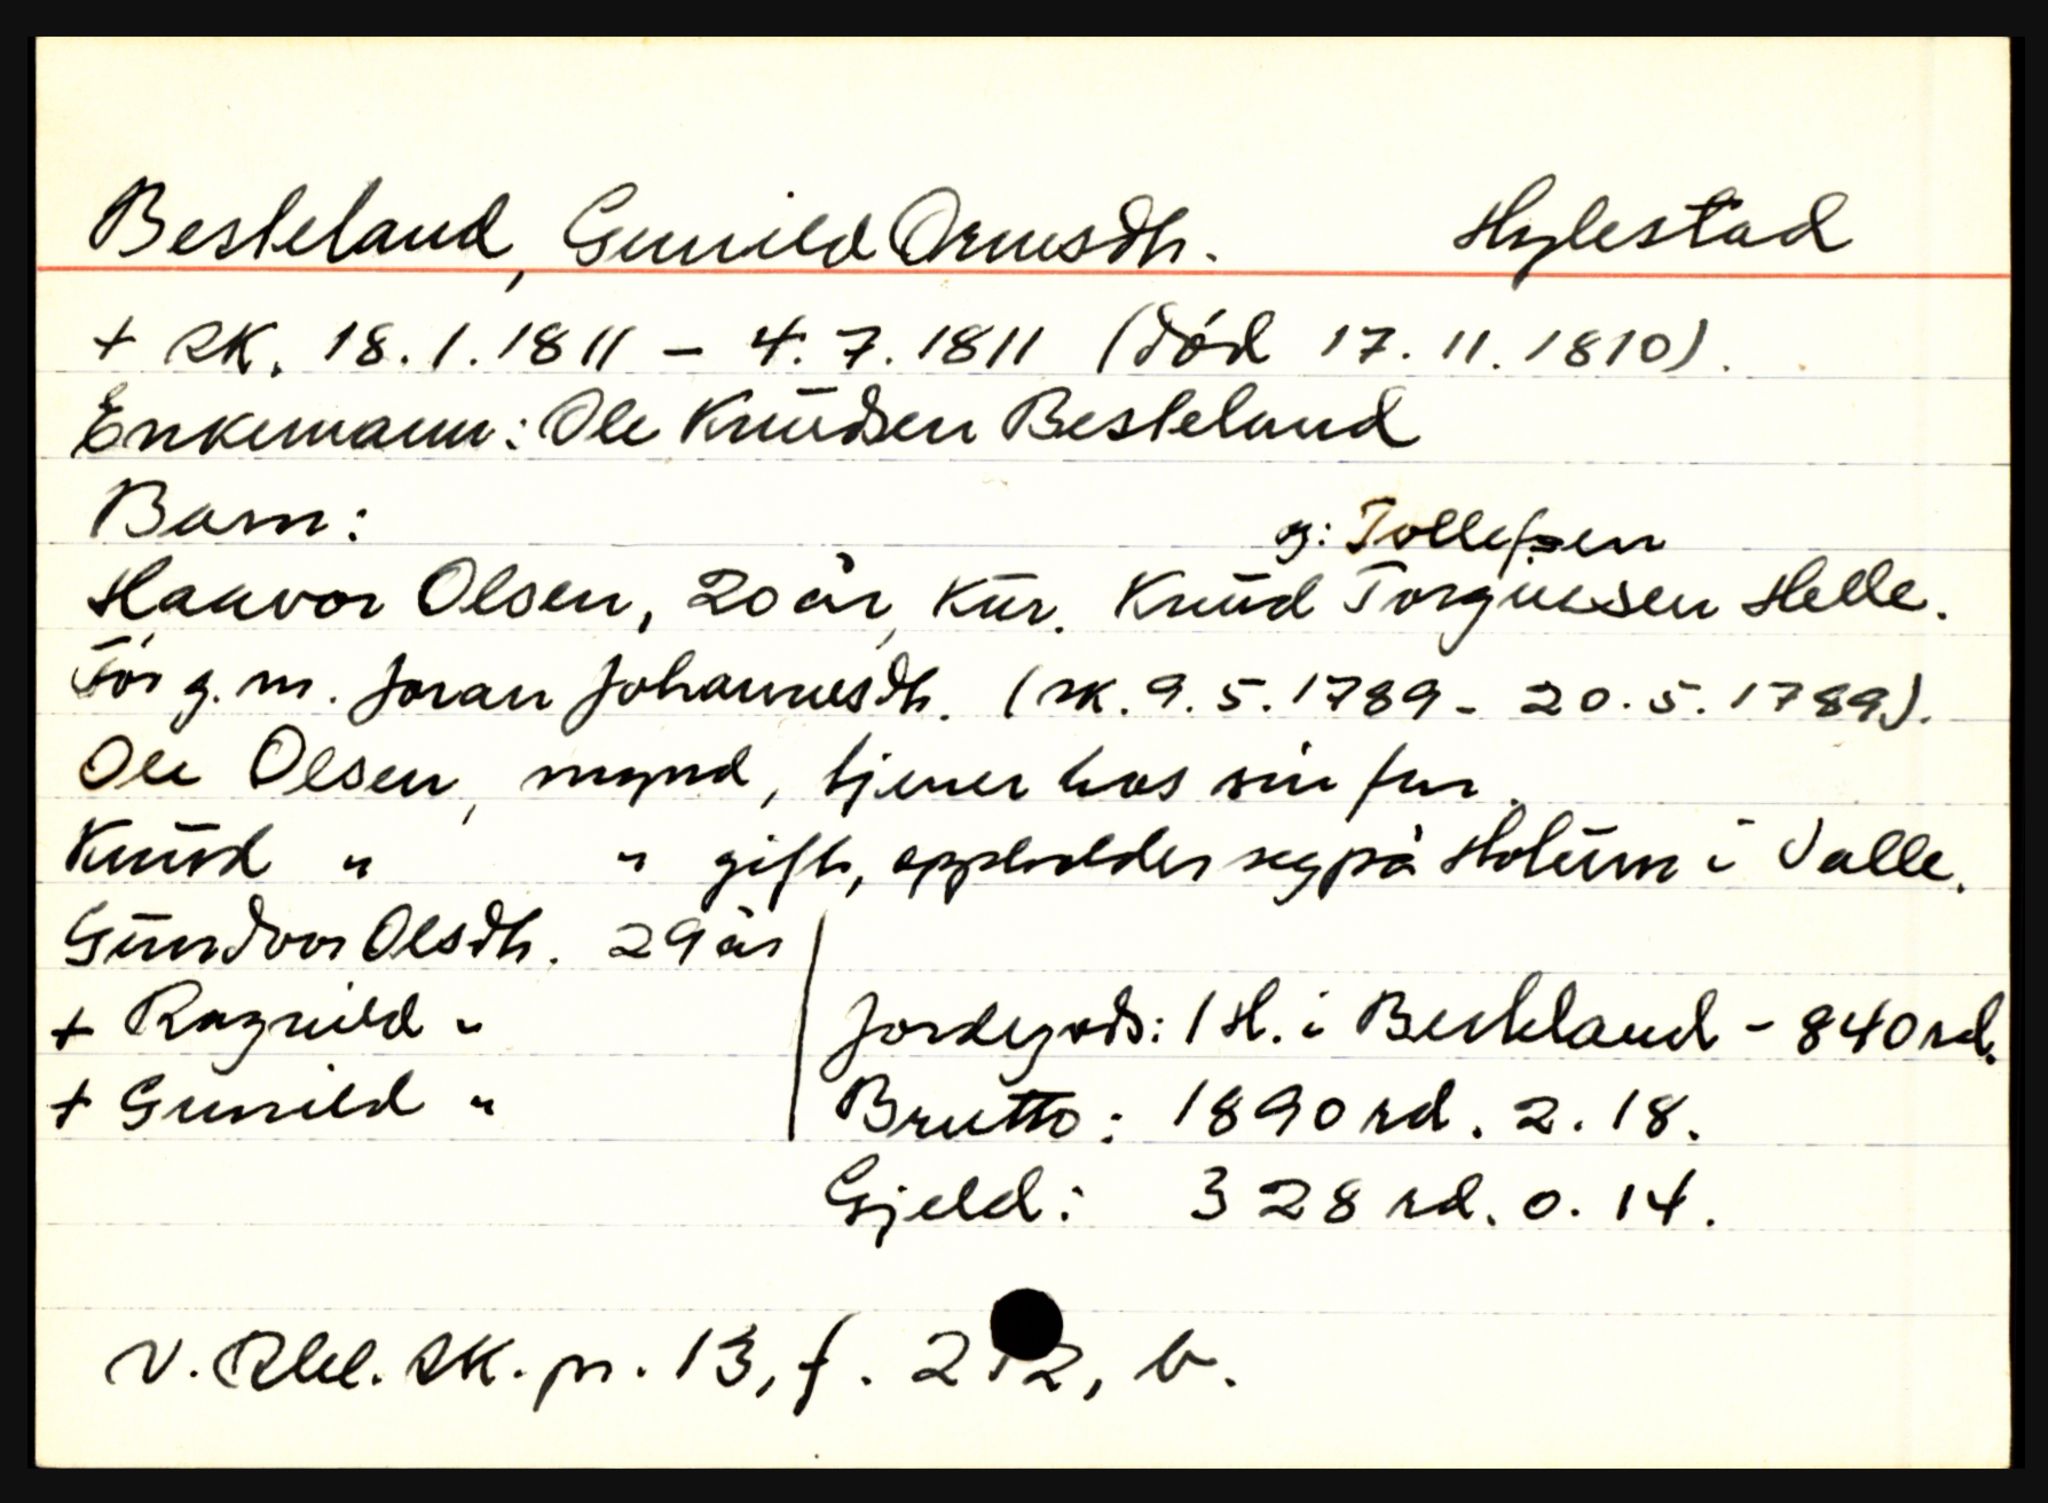 Besteland, Gunild Ormsdtr. Hylestad
+ sk. 18.1.1811 - 4.7.1811 (død 17.11.1810).
Enkemann: Ole Knudsen Besteland
Barn:
ɔ: Tollefsen
Haavor Olsen, 20 år, kur. Knud Torgiussen Helle.
Før g.m. Joran Johannesdtr. (sk. 9.5.1789 - 20.5.1789).
Ole Olsen, mynd, tjener hos sin far.
Knud " " gift, oppholder seg på Holum i Valle.
Gundvor Olsdtr. 29 år
+ Ragnild "
+ Gunild "
Jordegods: 1 H. i Besteland - 840 rd.
Brutto: 1890 rd. 2. 18.
Gjeld: 328 rd. 0. 14.
V. Rbl. sk. pr. 13, f. b.